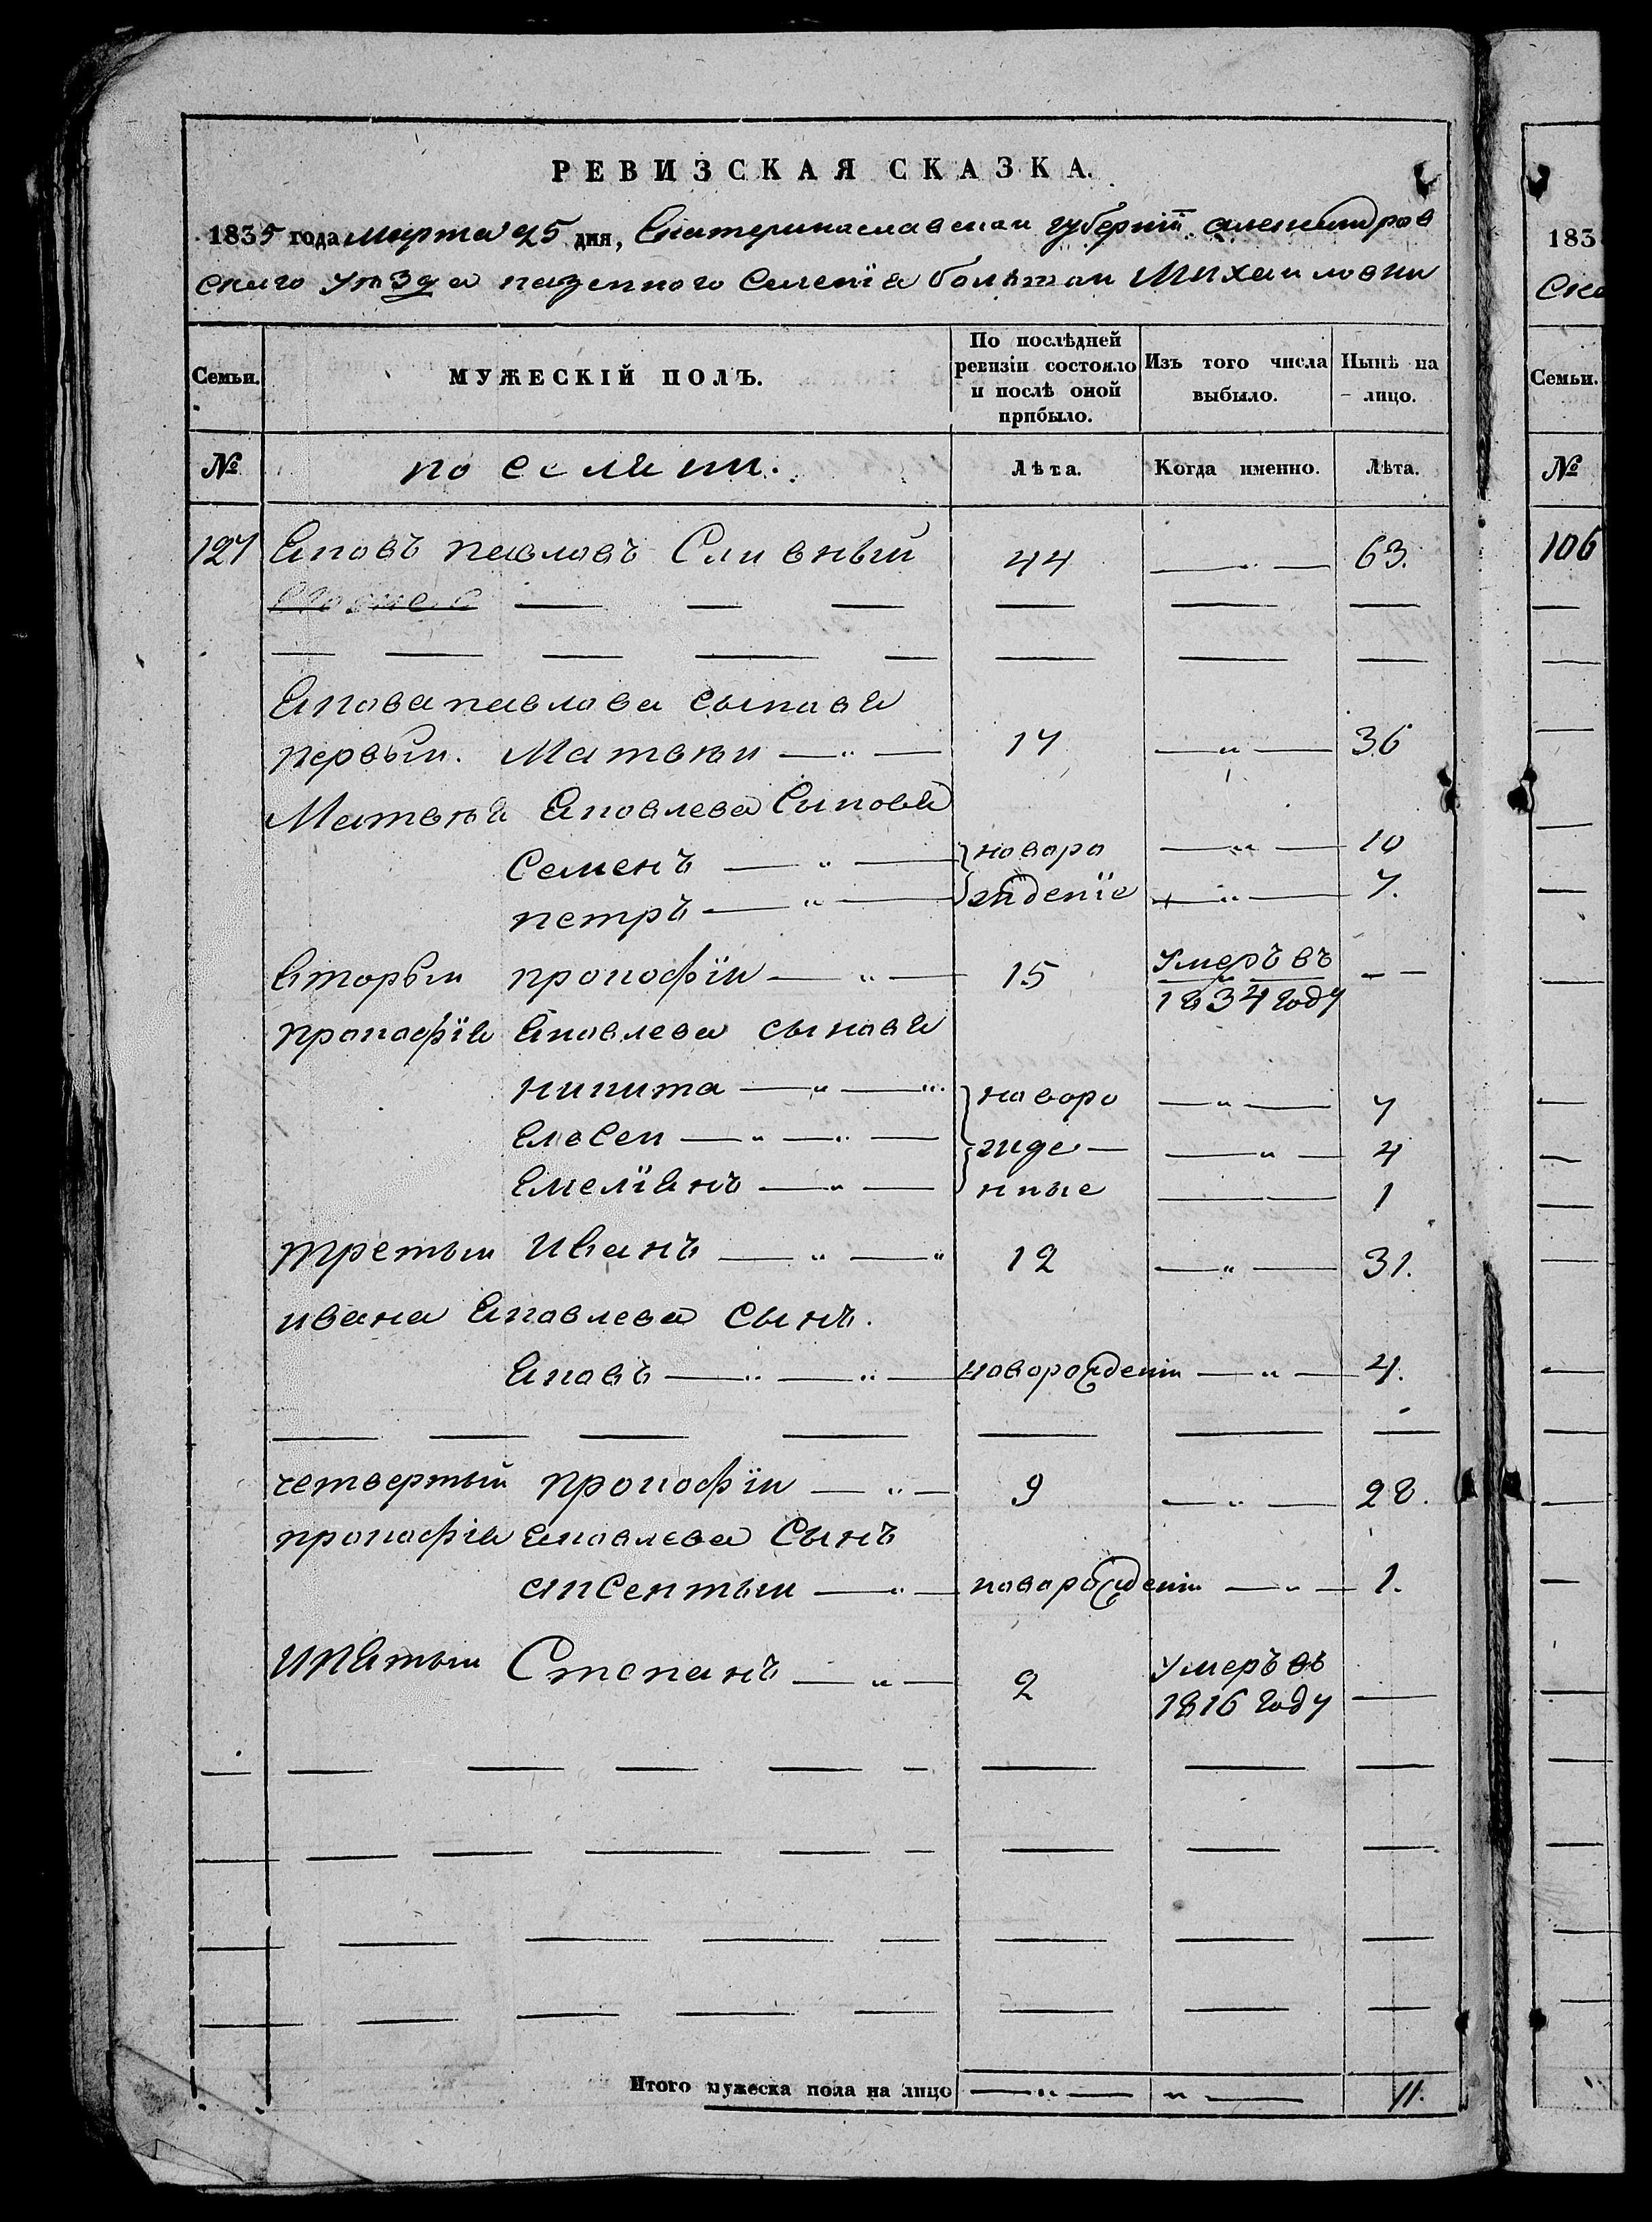 РЕВИЗСКАЯ СКАЗКА.
1835 года марта 25 дня, Екатеринаславскои губернїи александров
скаго уѣзда казенного Селенїя болшои Михаиловки
Семьи.
МУЖЕСКІЙ ПОЛЪ.
По послѣдней ревизіи состояло и послѣ оной прибыло.
Изъ того числа выбыло.
Нынѣ на лицо.
№
Лѣта.
Когда именно.
Лѣта.
127 Яковъ павловъ Сливный 44 — „ — 63.
Якова павлова сыновя
первыи. Матвѣи — „ — 17 — „ — 36
Матвѣя Яковлева Сыновя
Семенъ — „ — новоро — „ — 10
петръ — „ — жденїе — „ — 7.
вторыи прокофїи — „ — 15 Умеръ въ 1834 году — —
прокофїя Яковлева сыновя
никита — „ — „ новоро — „ — 7
Елесеи — „ — „ — жде — — „ — 4
Емелїянъ — „ — нные — — 1
третыи Иванъ — „ — „ 12 — „ — 31.
ивана Яковлева Сынъ.
Яковъ — „ — „ — новорожденіи — „ — 4.
четвертыи прокофїи — „ — 9 — „ — 28.
прокофія Яковлева Сынъ
авсентыи — „ — новорожденіи — „ — 1.
ипятыи Степанъ — „ — 2 Умеръ въ 1816 году —
Итого мужеска пола на лицо — „ — „ — 11.
183
Ска
Семьи.
№
106